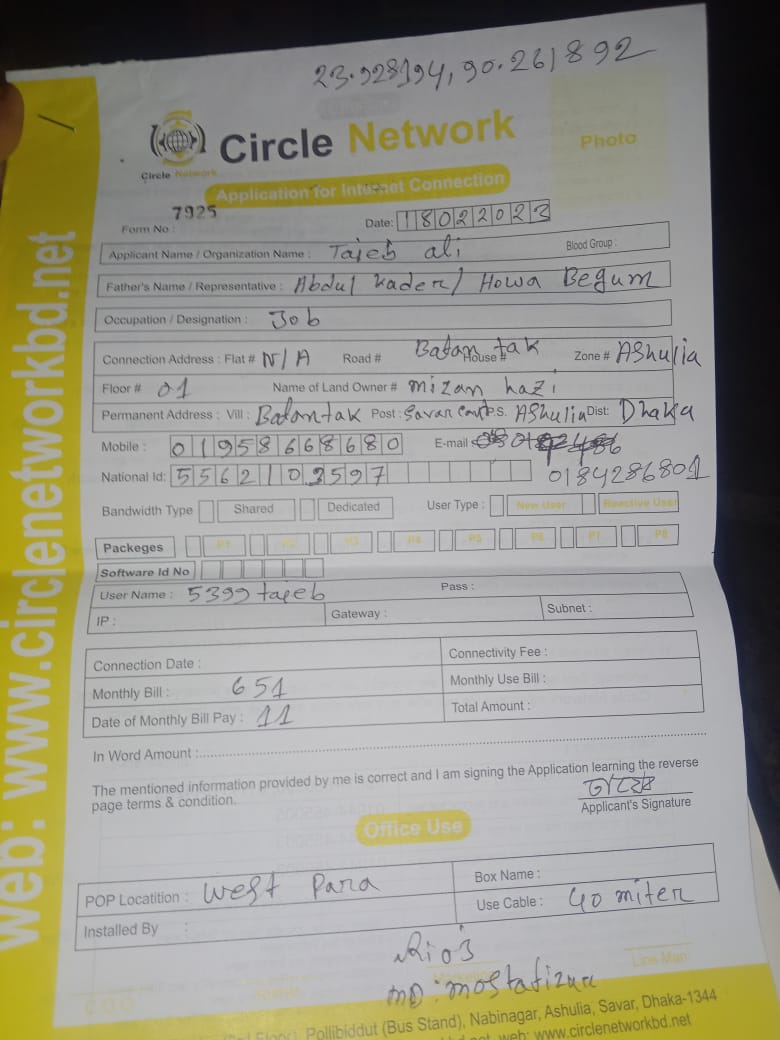 23.928194, 90.261892
Circle Network
Circle Network
Photo
Application for Internet Connection
7925
Form No :
Date: 18022023
Applicant Name / Organization Name : Tajeb ali
Blood Group :
Father's Name / Representative : Abdul kader / Howa Begum
Occupation / Designation : Job
Connection Address : Flat # N/A Road # Batan tak House # Zone # AShulia
Floor # 01 Name of Land Owner # mizan hazi
Permanent Address : Vill : Batantak Post : Savar cantt P.S. AShulia Dist: Dhaka
Mobile : 01958668680 E-mail
National Id: 5562102597 0184286801
Bandwidth Type Shared Dedicated User Type : New User Reactive User
Packeges P1 P2 P3 P4 P5 P6 P7 P8
Software Id No
User Name : 5399tajeb Pass :
IP : Gateway : Subnet :
Connection Date : Connectivity Fee :
Monthly Bill : 651 Monthly Use Bill :
Date of Monthly Bill Pay : 11 Total Amount :
In Word Amount :
The mentioned information provided by me is correct and I am signing the Application learning the reverse
page terms & condition.
Applicant's Signature
Office Use
POP Locatition : West Para Box Name :
Installed By : Use Cable : 40 miter
MD: mostafizur
C.O.O Line Man
Pollibiddut (Bus Stand), Nabinagar, Ashulia, Savar, Dhaka-1344
web: www.circlenetworkbd.net
web: www.circlenetworkbd.net